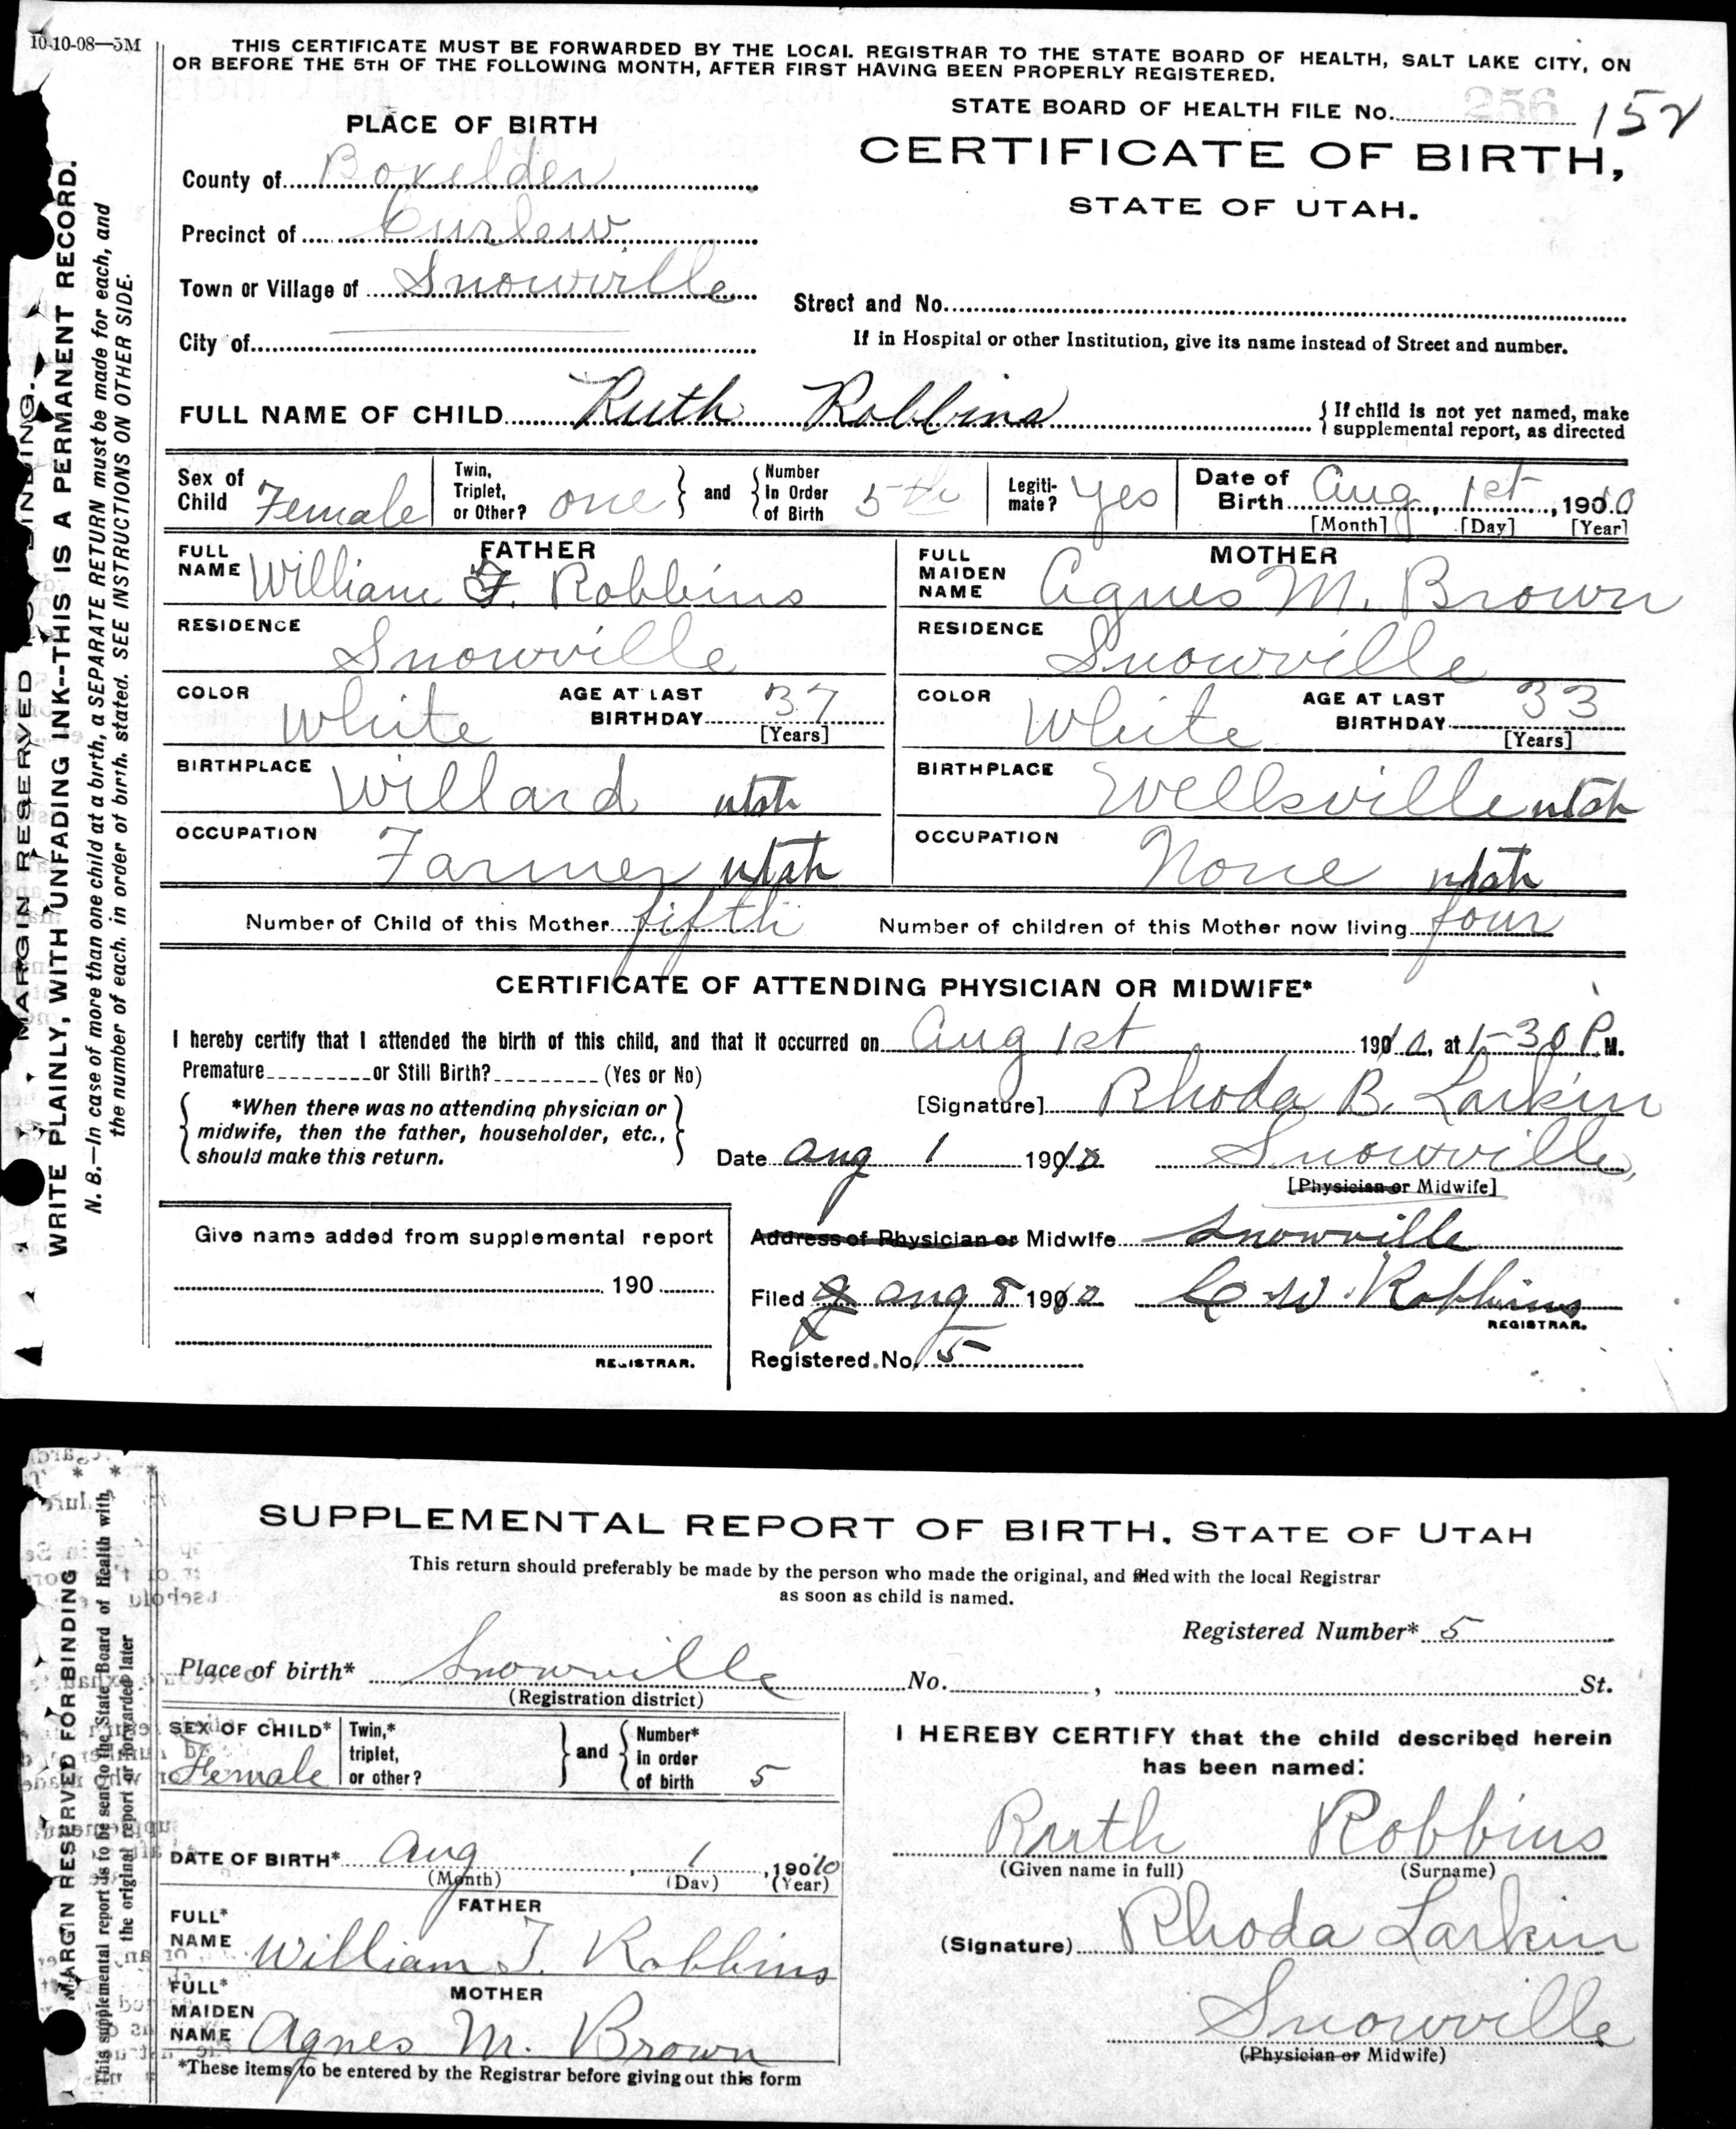 10-10-08—5M
THIS CERTIFICATE MUST BE FORWARDED BY THE LOCAL REGISTRAR TO THE STATE BOARD OF HEALTH, SALT LAKE CITY, ON
OR BEFORE THE 5TH OF THE FOLLOWING MONTH, AFTER FIRST HAVING BEEN PROPERLY REGISTERED.
STATE BOARD OF HEALTH FILE No. 256 152
PLACE OF BIRTH
CERTIFICATE OF BIRTH,
STATE OF UTAH.
County of Boxelder
Precinct of Curlew
Town or Village of Snowville
Street and No.
City of
If in Hospital or other Institution, give its name instead of Street and number.
FULL NAME OF CHILD Ruth Robbins
If child is not yet named, make
supplemental report, as directed
Sex of Child Female
Twin, Triplet, or Other? one and Number in Order of Birth 5th
Legiti-mate? Yes
Date of Birth Aug, 1st, 1910
[Month] [Day] [Year]
FATHER
FULL NAME William T. Robbins
RESIDENCE
Snowville
COLOR White AGE AT LAST BIRTHDAY 37
[Years]
BIRTHPLACE Willard utah
OCCUPATION Farmer utah
MOTHER
FULL MAIDEN NAME Agnes M. Brown
RESIDENCE
Snowville
COLOR White AGE AT LAST BIRTHDAY 33
[Years]
BIRTHPLACE Wellsville utah
OCCUPATION None utah
Number of Child of this Mother fifth Number of children of this Mother now living four
CERTIFICATE OF ATTENDING PHYSICIAN OR MIDWIFE*
I hereby certify that I attended the birth of this child, and that it occurred on Aug 1st 1910, at 1-30 P M.
Premature or Still Birth? (Yes or No)
*When there was no attending physician or
midwife, then the father, householder, etc.,
should make this return.
[Signature] Rhoda B. Larkin
Date Aug 1 1910 Snowville,
[Physician or Midwife]
Give name added from supplemental report
190
REGISTRAR.
Address of Physician or Midwife Snowville
Filed Aug 5 1910 C W. Robbins
REGISTRAR.
Registered No. 5
MARGIN RESERVED
WRITE PLAINLY, WITH UNFADING INK--THIS IS A PERMANENT RECORD.
N. B.—In case of more than one child at a birth, a SEPARATE RETURN must be made for each, and
the number of each, in order of birth, stated. SEE INSTRUCTIONS ON OTHER SIDE.
SUPPLEMENTAL REPORT OF BIRTH, STATE OF UTAH
This return should preferably be made by the person who made the original, and filed with the local Registrar
as soon as child is named.
Registered Number* 5
Place of birth* Snowville No. , St.
(Registration district)
SEX OF CHILD* Female
Twin,* triplet, or other? and Number* in order of birth 5
DATE OF BIRTH* Aug, 1, 1910
(Month) (Day) (Year)
FATHER
FULL* NAME William T. Robbins
MOTHER
FULL* MAIDEN NAME Agnes M. Brown
*These items to be entered by the Registrar before giving out this form
I HEREBY CERTIFY that the child described herein
has been named:
Ruth Robbins
(Given name in full) (Surname)
(Signature) Rhoda Larkin
Snowville
(Physician or Midwife)
MARGIN RESERVED FOR BINDING
This supplemental report is to be sent to the State Board of Health with
the original report or forwarded later